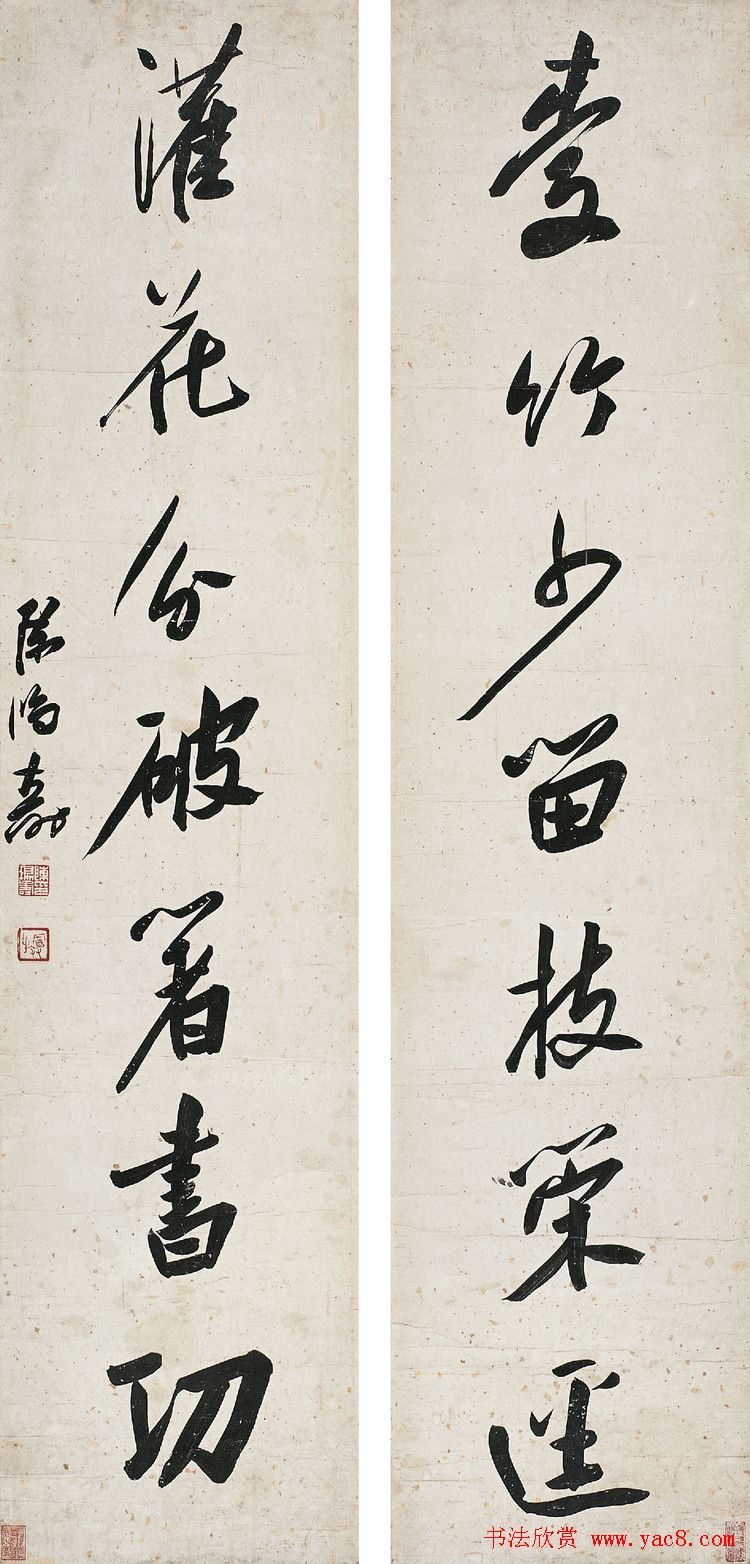 愛竹少留枝策逕
灌花分破箸書功
陳鴻壽
书法欣赏 www.yac8.com